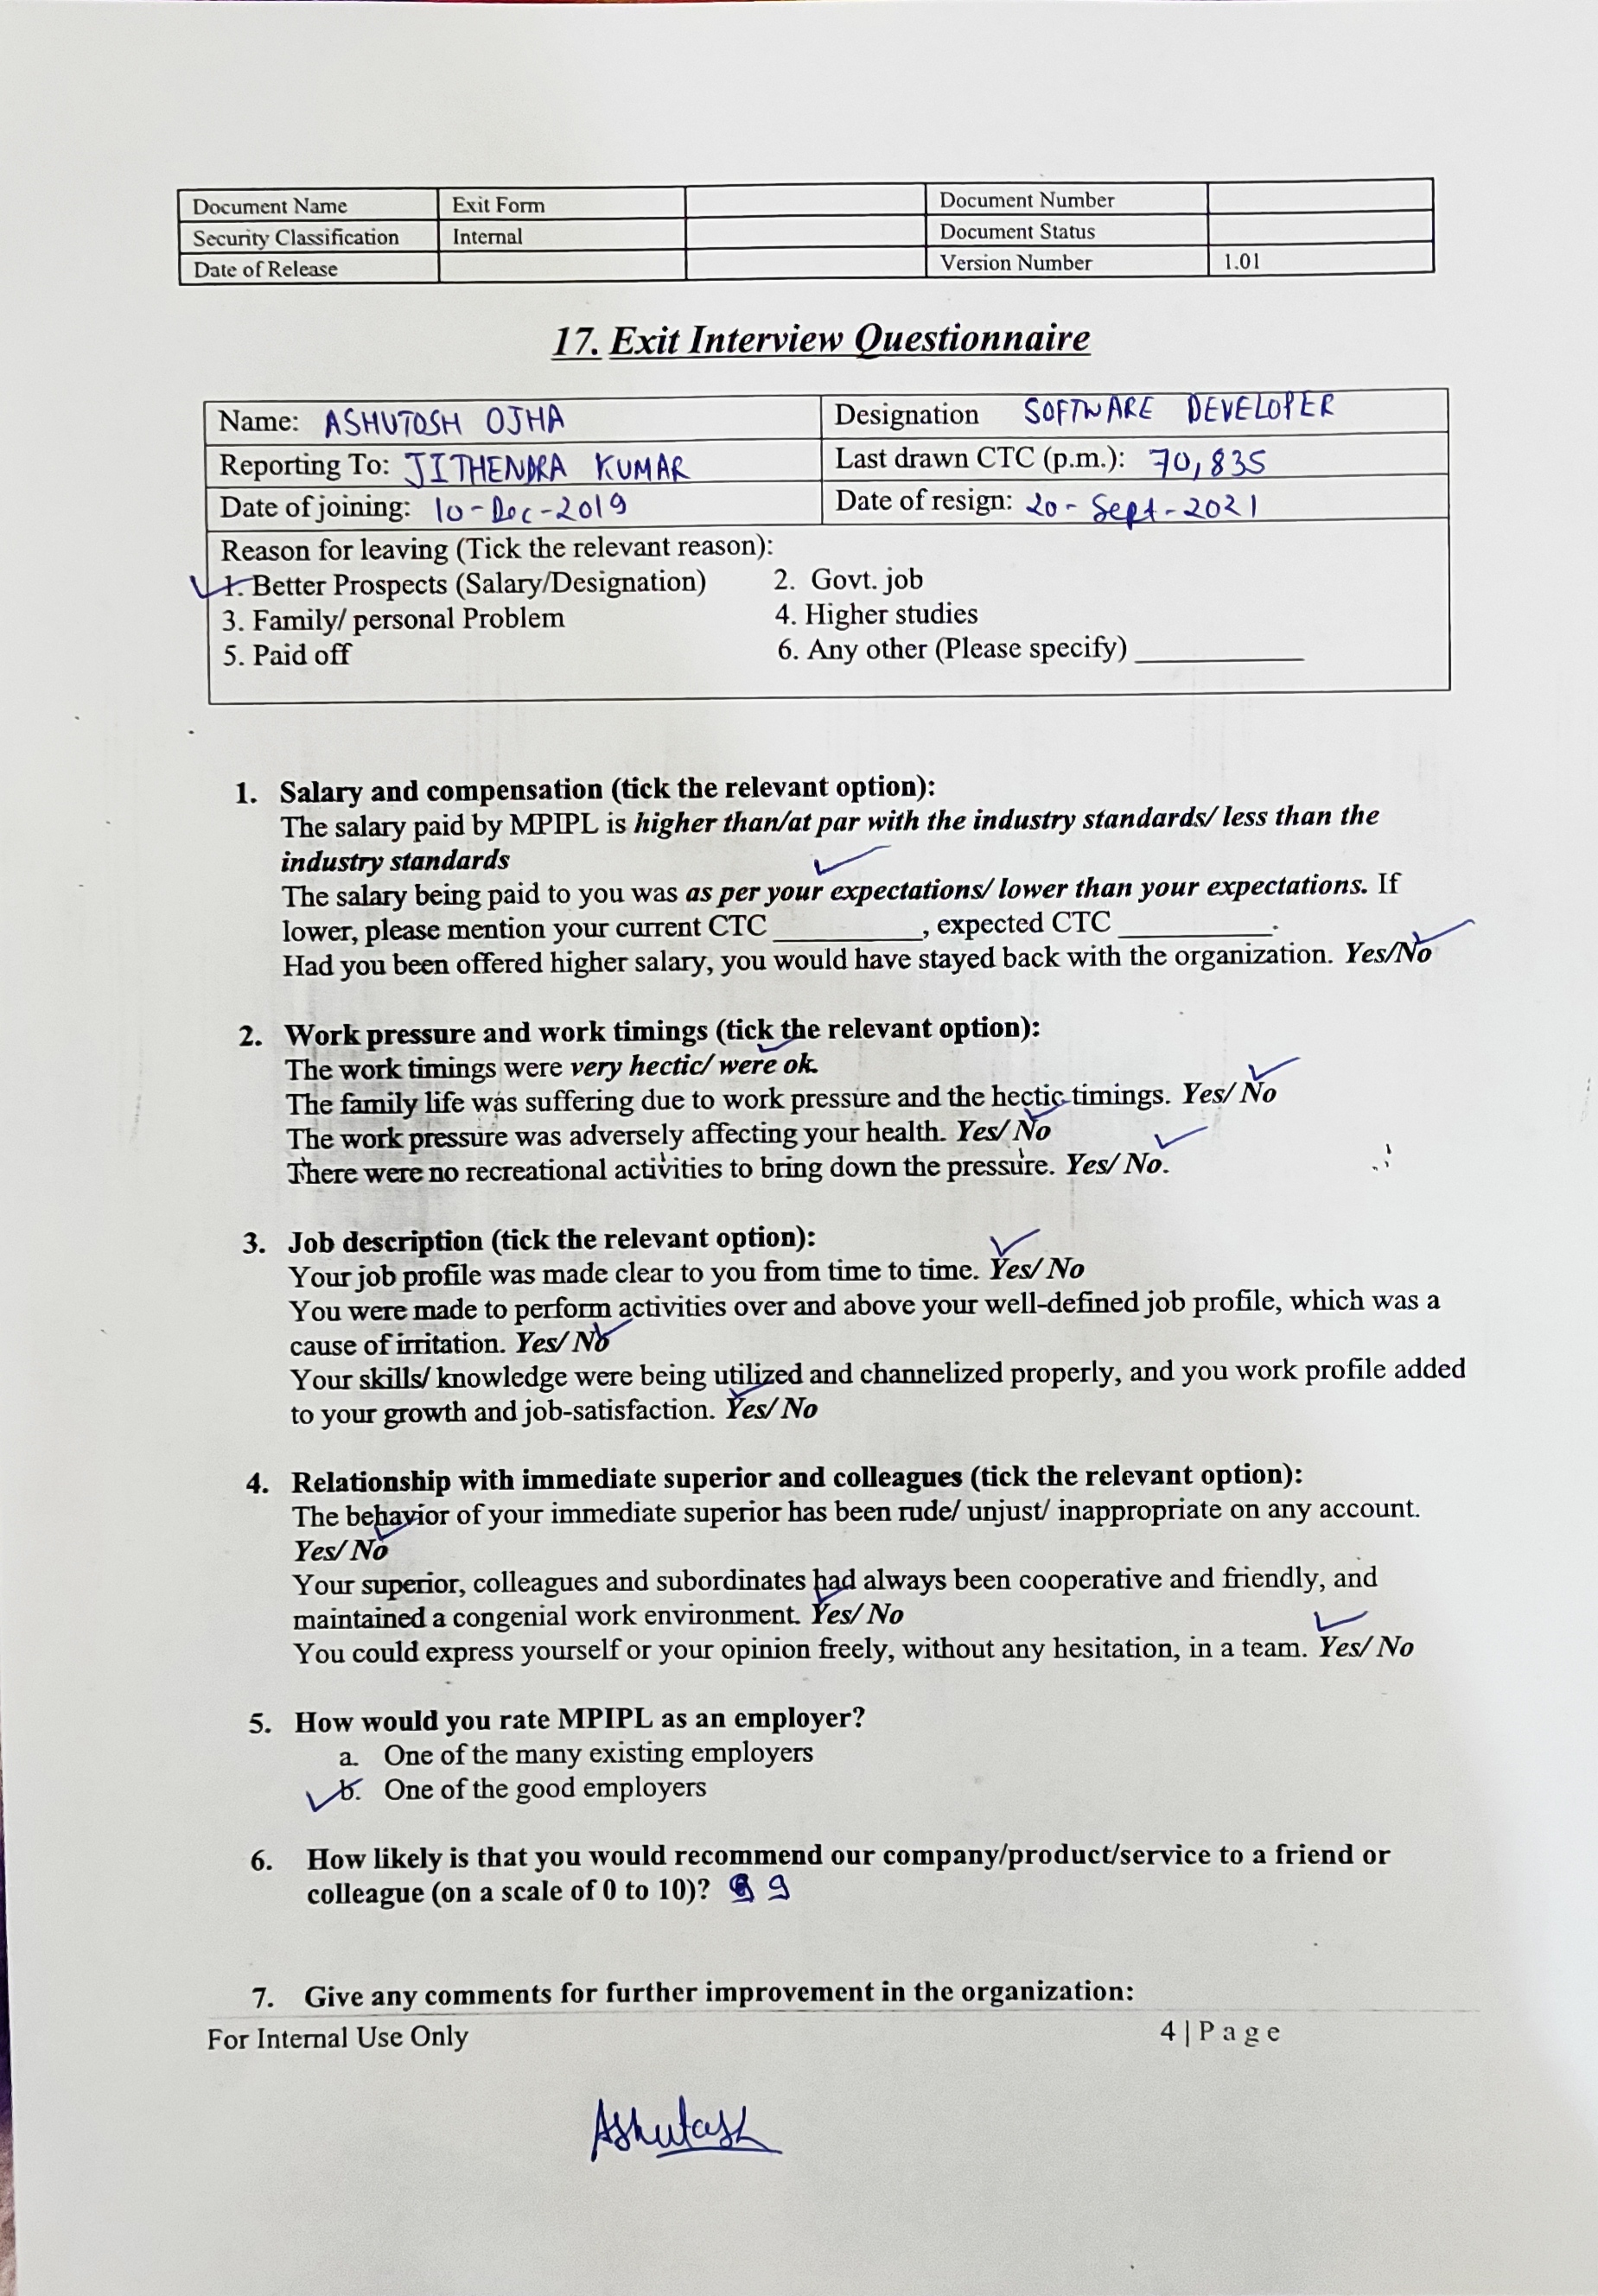 Document Name Exit Form Document Number
Security Classification Internal Document Status
Date of Release Version Number 1.01
17. Exit Interview Questionnaire
Name: ASHUTOSH OJHA Designation SOFTWARE DEVELOPER
Reporting To: JITHENDRA KUMAR Last drawn CTC (p.m.): 70,835
Date of joining: 10-Dec-2019 Date of resign: 20-Sept-2021
Reason for leaving (Tick the relevant reason):
1. Better Prospects (Salary/Designation) 2. Govt. job
3. Family/ personal Problem 4. Higher studies
5. Paid off 6. Any other (Please specify) ____________
1. Salary and compensation (tick the relevant option):
The salary paid by MPIPL is higher than/at par with the industry standards/ less than the
industry standards
The salary being paid to you was as per your expectations/ lower than your expectations. If
lower, please mention your current CTC __________, expected CTC __________.
Had you been offered higher salary, you would have stayed back with the organization. Yes/No
2. Work pressure and work timings (tick the relevant option):
The work timings were very hectic/ were ok.
The family life was suffering due to work pressure and the hectic timings. Yes/ No
The work pressure was adversely affecting your health. Yes/ No
There were no recreational activities to bring down the pressure. Yes/ No.
3. Job description (tick the relevant option):
Your job profile was made clear to you from time to time. Yes/ No
You were made to perform activities over and above your well-defined job profile, which was a
cause of irritation. Yes/ No
Your skills/ knowledge were being utilized and channelized properly, and you work profile added
to your growth and job-satisfaction. Yes/ No
4. Relationship with immediate superior and colleagues (tick the relevant option):
The behavior of your immediate superior has been rude/ unjust/ inappropriate on any account.
Yes/ No
Your superior, colleagues and subordinates had always been cooperative and friendly, and
maintained a congenial work environment. Yes/ No
You could express yourself or your opinion freely, without any hesitation, in a team. Yes/ No
5. How would you rate MPIPL as an employer?
a. One of the many existing employers
b. One of the good employers
6. How likely is that you would recommend our company/product/service to a friend or
colleague (on a scale of 0 to 10)? 9
7. Give any comments for further improvement in the organization:
For Internal Use Only 4 | P a g e
Ashutosh